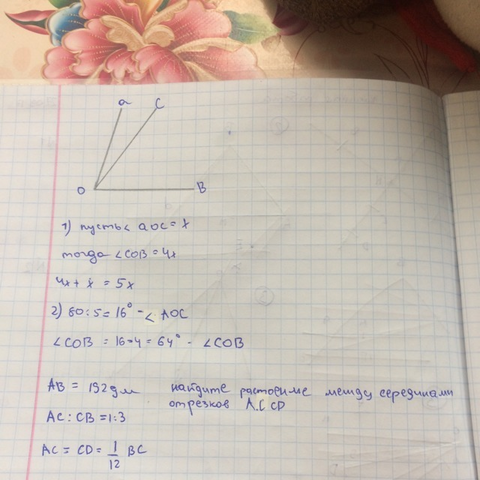 a C
O B
1) пусть < аос = x
тогда ∠COB = 4x
4x + x = 5x
2) 80 : 5 = 16° - ∠ AOC
∠COB = 16·4 = 64° - ∠COB
AB = 192дм найдите растоение между серединами
отрезков AC CD
AC : CB = 1:3
AC = CD = 1/12 BC